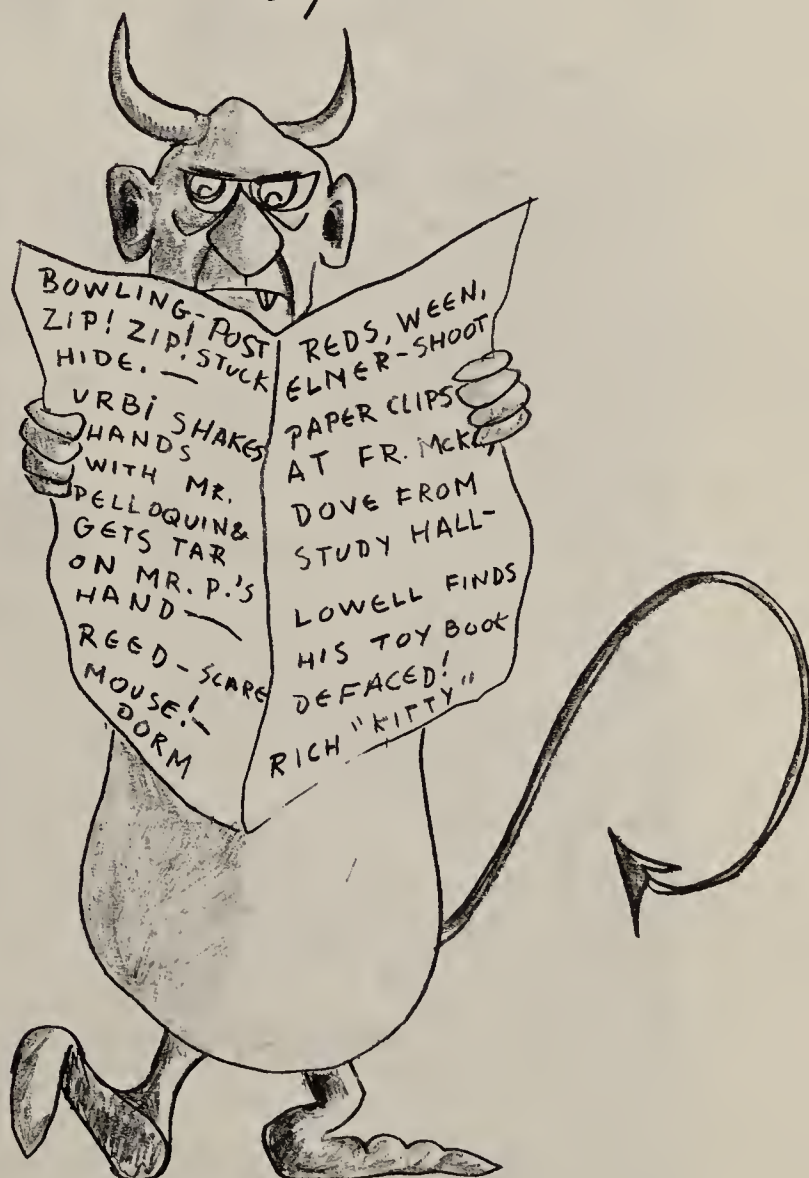 BOWLING-POST
ZIP! ZIP! STUCK
HIDE. —
URBi SHAKES
HANDS
WITH MR.
PELLOQUIN &
GETS TAR
ON MR. P.'S
HAND —
REED - SCARE
MOUSE! —
DORM
REDS, WEEN,
ELMER - SHOOT
PAPER CLIPS
AT FR. McK,
DOVE FROM
STUDY HALL -
LOWELL FINDS
HIS TOY BOOK
DEFACED!
RICH "KITTY"